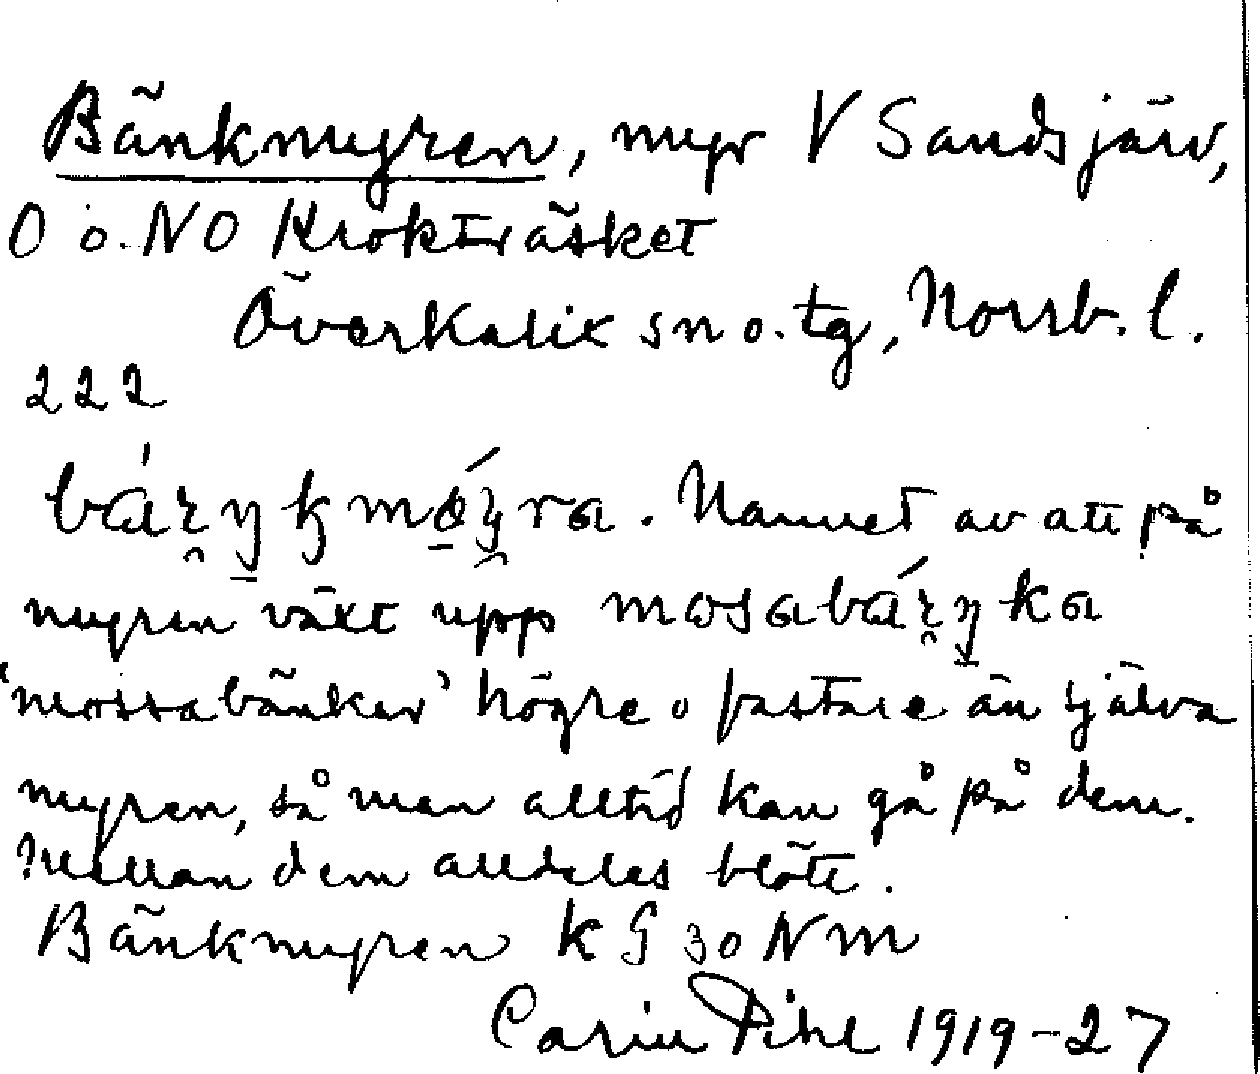 Bänkmyren, myr V Sandsjärv,
O o. NO Krokträsket
Överkalix sn o. tg, Norrb. l.
222
Namnet av att på
myren växt upp
'mossabänkar' högre o fastare än själva
myren, så man alltid kan gå på dem.
Mellan dem alldeles blött.
Bänkmyren k G 30 N m
Carin Pihl 1919-27